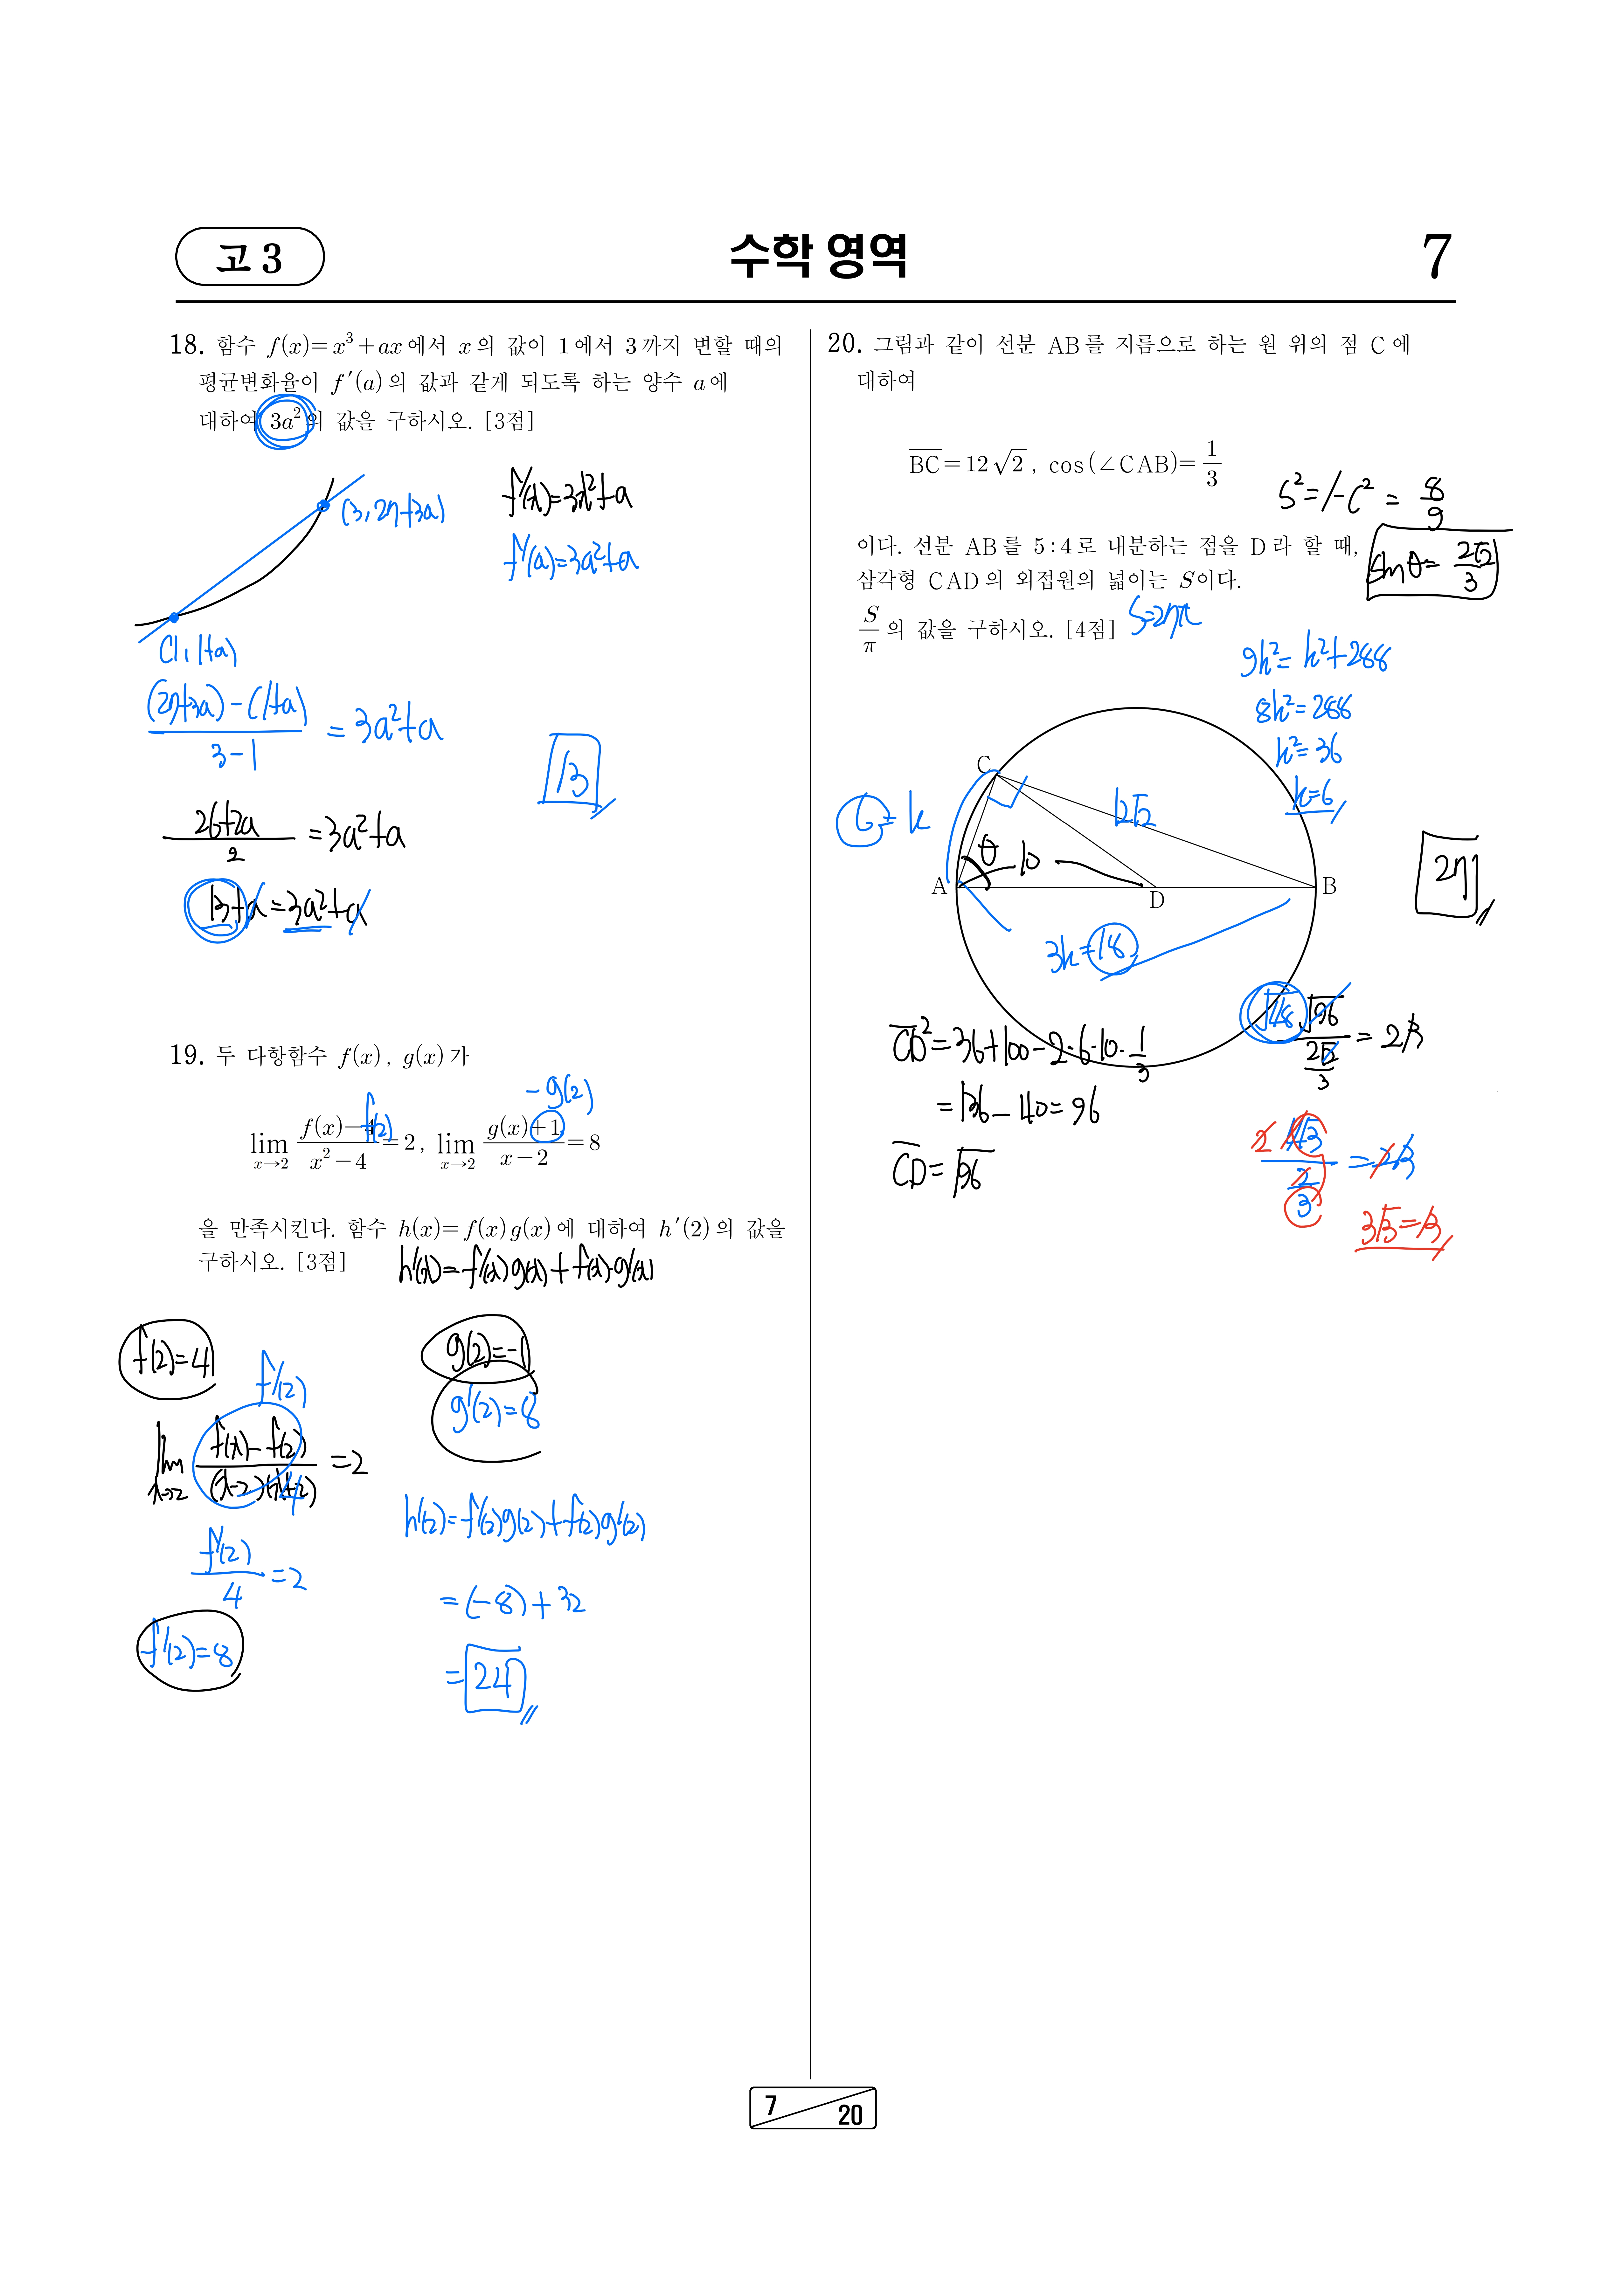 고 3
수학 영역
7
18. 함수 f(x)=x³+ax에서 x의 값이 1에서 3까지 변할 때의
평균변화율이 f′(a)의 값과 같게 되도록 하는 양수 a에
대하여 3a²의 값을 구하시오. [3점]
(3, 27+3a)
f′(x)=3x²+a
f′(a)=3a²+a
(1, 1+a)
(27+3a)-(1+a)
3-1
=3a²+a
13
26+2a
2
=3a²+a
13+a=3a²+a
19. 두 다항함수 f(x), g(x)가
f(2)
-g(2)
lim x→2 (f(x)-4)/(x²-4)=2, lim x→2 (g(x)+1)/(x-2)=8
을 만족시킨다. 함수 h(x)=f(x)g(x)에 대하여 h′(2)의 값을
구하시오. [3점]
h′(x)=f′(x)g(x)+f(x)·g′(x)
f(2)=4
g(2)=-1
f′(2)
g′(2)=8
lim x→2 (f(x)-f(2))/((x-2)(x+2)) =2
4
h′(2)=f′(2)g(2)+f(2)g′(2)
f′(2)/4 =2
=(-8)+32
f′(2)=8
=24
20. 그림과 같이 선분 AB를 지름으로 하는 원 위의 점 C에
대하여
BC=12√2, cos(∠CAB)=1/3
S²=1-C²=8/9
이다. 선분 AB를 5:4로 내분하는 점을 D라 할 때,
sinθ=2√2/3
삼각형 CAD의 외접원의 넓이는 S이다.
S/π의 값을 구하시오. [4점]
S=27π
9k²=k²+288
8k²=288
k²=36
k=6
C
12√2
6=k
θ
10
A
D
B
27
3k=18
CD²=36+100-2·6·10·1/3
√48 √96
2√2/3
=2R
=136-40=96
CD=√96
2 4√3
2/3
=2R
3√3=R
7
20